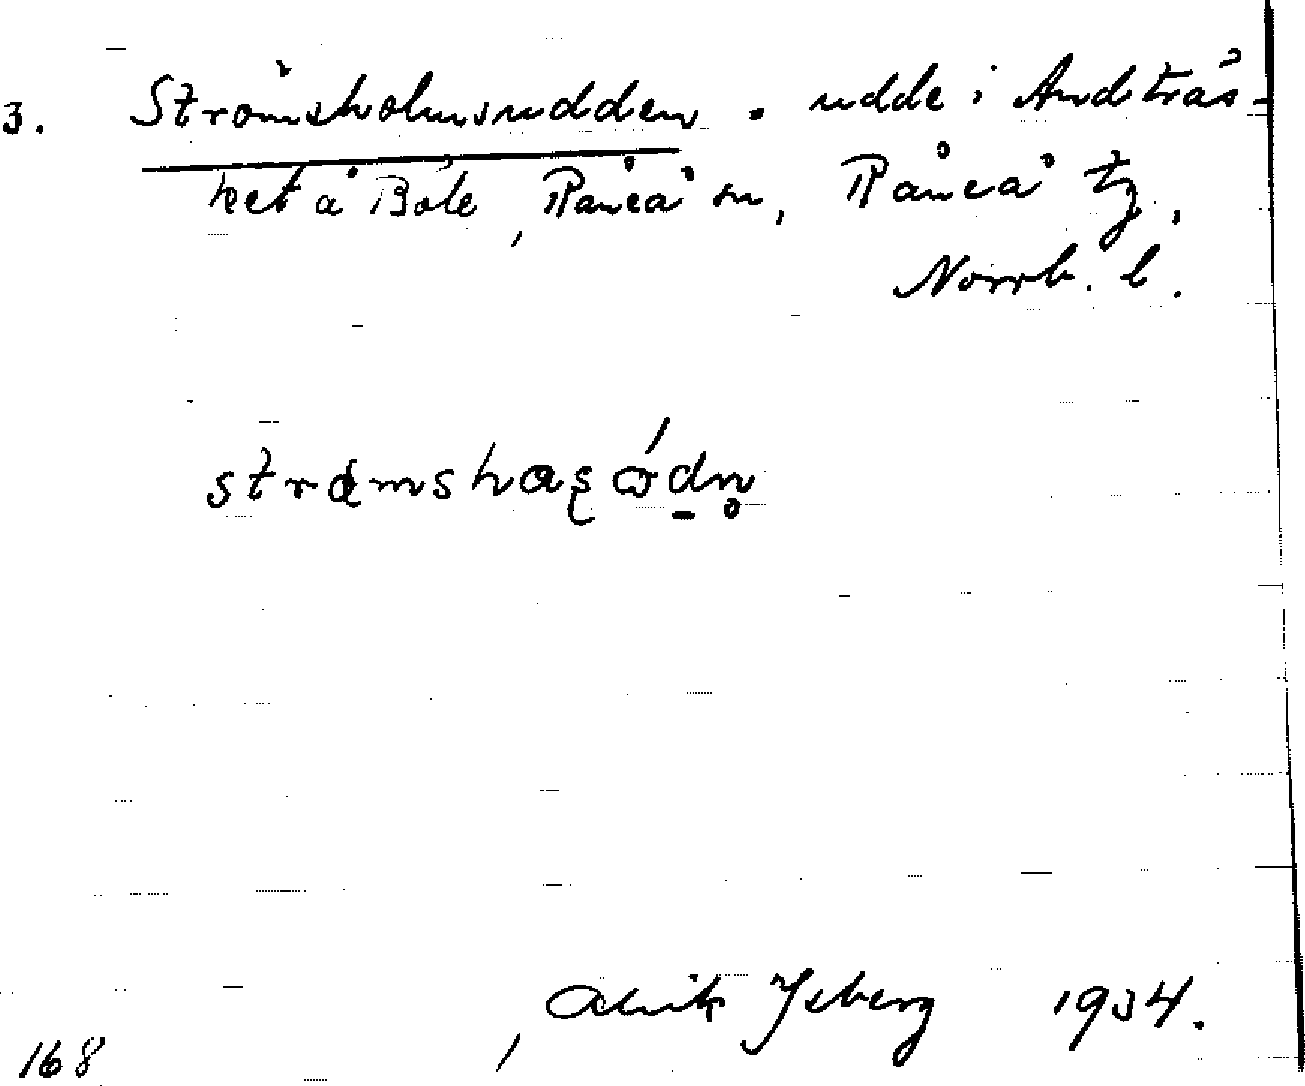 3. Strömsholmsudden. udde i Andträs-
ket å Böle, Råneå sn, Råneå tg,
Norrb. l.
Alvik Isberg 1934.
168